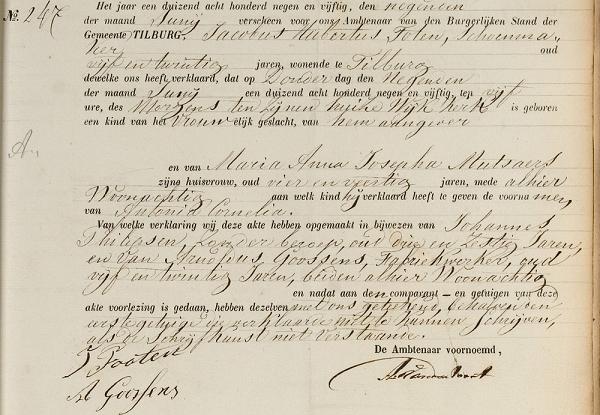 Het jaar een duizend acht honderd negen en vijftig, den negenden
№. 247 der maand Junij verscheen voor ons Ambtenaar van den Burgerlijken Stand der
Gemeente TILBURG, Jacobus Hubertus Foten, Schoenma-
ker oud
vijf en twintig jaren, wonende te Tilburg
dewelke ons heeft verklaard, dat op Donder dag den Negenden
der maand Junij een duizend acht honderd negen en vijftig, ten vijf
ure, des Morgens ten zijnen huize Wijk Kerk is geboren
een kind van het Vrouw elijk geslacht, van hem aangever
A.
en van Maria Anna Josepha Mutsaers
zijne huisvrouw, oud vier en veertig jaren, mede alhier
Woonachtig aan welk kind hij verklaard heeft te geven de voorna men,
van Antonia Cornelia.
Van welke verklaring wij deze akte hebben opgemaakt in bijwezen van Johannes
Philipsen, zonder beroep, oud drie en zestig Jaren,
en van Arnoldus Goossens, Fabriekwerker, oud
vijf en twintig Jaren, beiden alhier Woonachtig
en nadat aan den comparant – en getuigen van deze
akte voorlezing is gedaan, hebben dezelven met ons geteekend, behalven den
eerste getuige die verklaarde niet te kunnen schrijven,
als de Schrijfkunst niet verstaande.
De Ambtenaar voornoemd,
J Footen
A Goossens